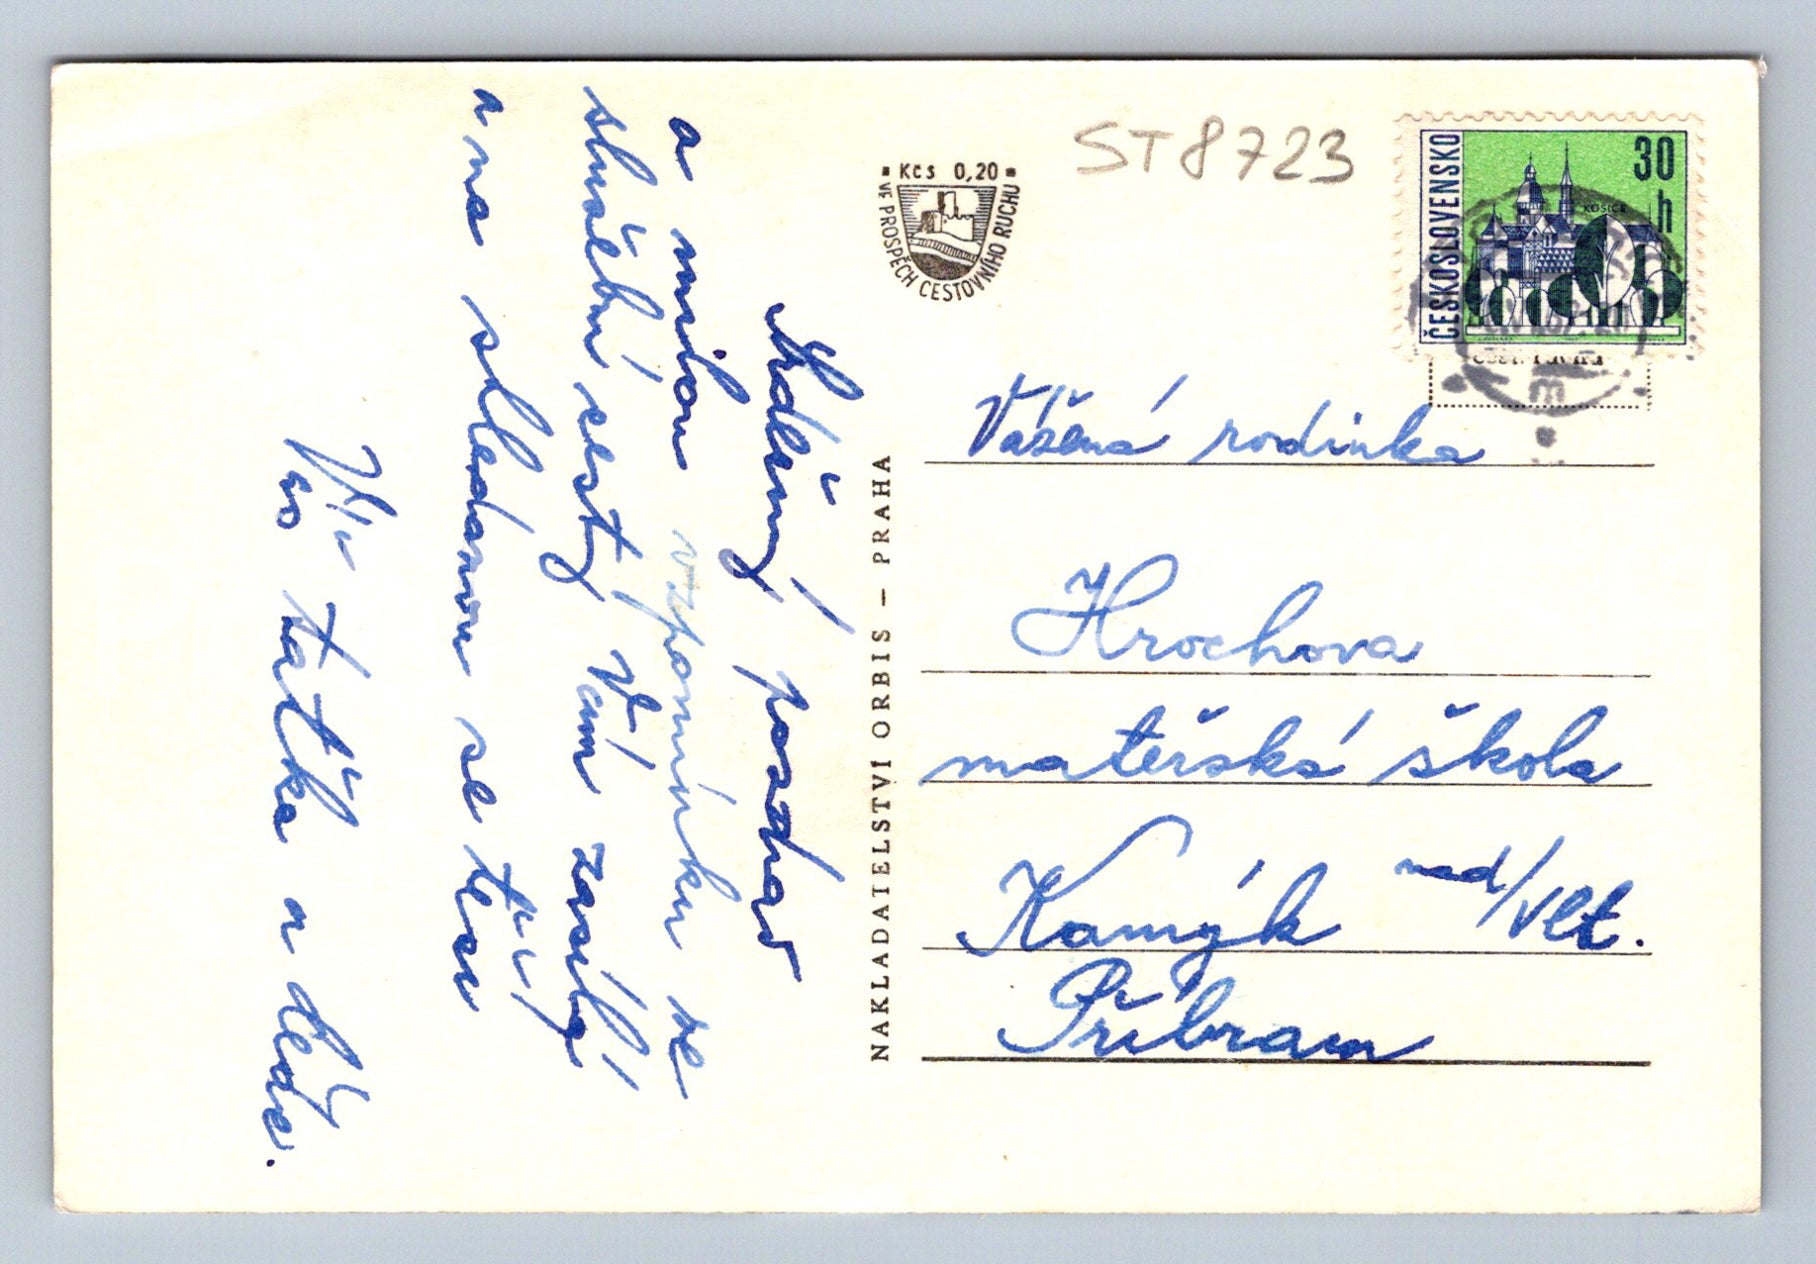 Srdečný pozdrav
a milou vzpomínku ze
služební cesty Vám zasílá
a na shledanou se těší
Váš taťka a děda.
NAKLADATELSTVÍ ORBIS – PRAHA
Kčs 0,20
VE PROSPĚCH CESTOVNÍHO RUCHU
ST8723
ČESKOSLOVENSKO
30 h
KOŠICE
Vážená rodinka
Hrochova
mateřská škola
Kamýk nad/Vlt.
Příbram